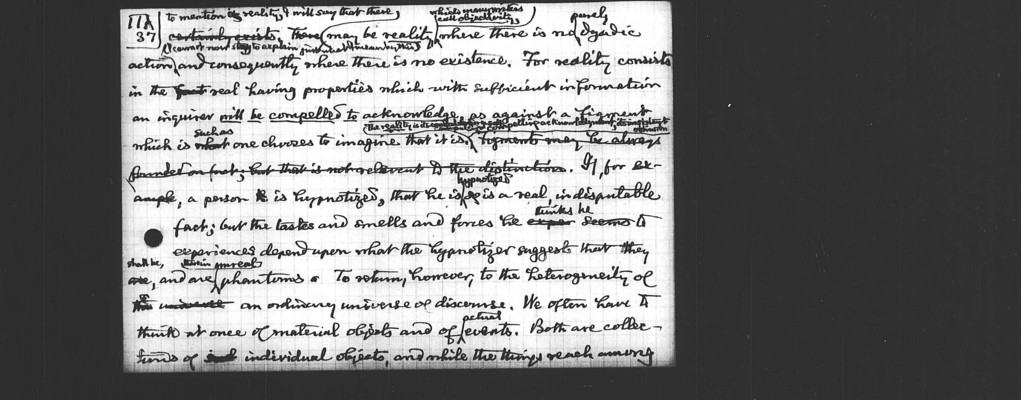 to mention reality, I will say that there, which many writers call objectivity, purely
III 37 certainly exists. There may be reality where there is no dyadic
(I cannot now stay to explain just what I mean by this)
action and consequently where there is no existence. For reality consists
in the fact real having properties which with sufficient information
an inquirer will be compelled to acknowledge, as against a figment
such as the reality is
which is what one chooses to imagine that it is. Figments may be always
founded on fact; but that is not relevant to the distinction. If, for ex-
hypnotized
ample, a person is hypnotized, that he is so is a real, indisputable
thinks he
fact; but the tastes and smells and forces he seems to
experiences depend upon what the hypnotizer suggests that they
shall be, unreal
are, and are phantoms. To return, however, to the heterogeneity of
universe an ordinary universe of discourse. We often have to
actual
think at once of material objects and of events. Both are collec-
tions of individual objects, and while the things reach among